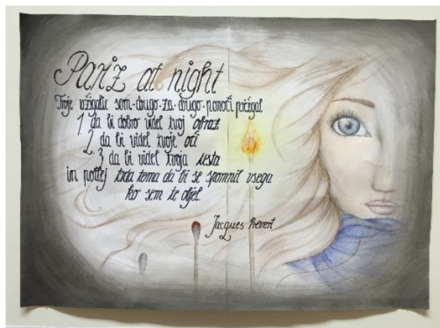 Pariz at night
Troje vžigalic sem drugo-za-drugo ponoči požigal
1 da bi dobro videl tvoj obraz
2 da bi videl tvoje oči
3 da bi videl tvoja usta
in potlej tota tema da bi se spomnil vsega
ko sem te objel.
Jacques Prevert